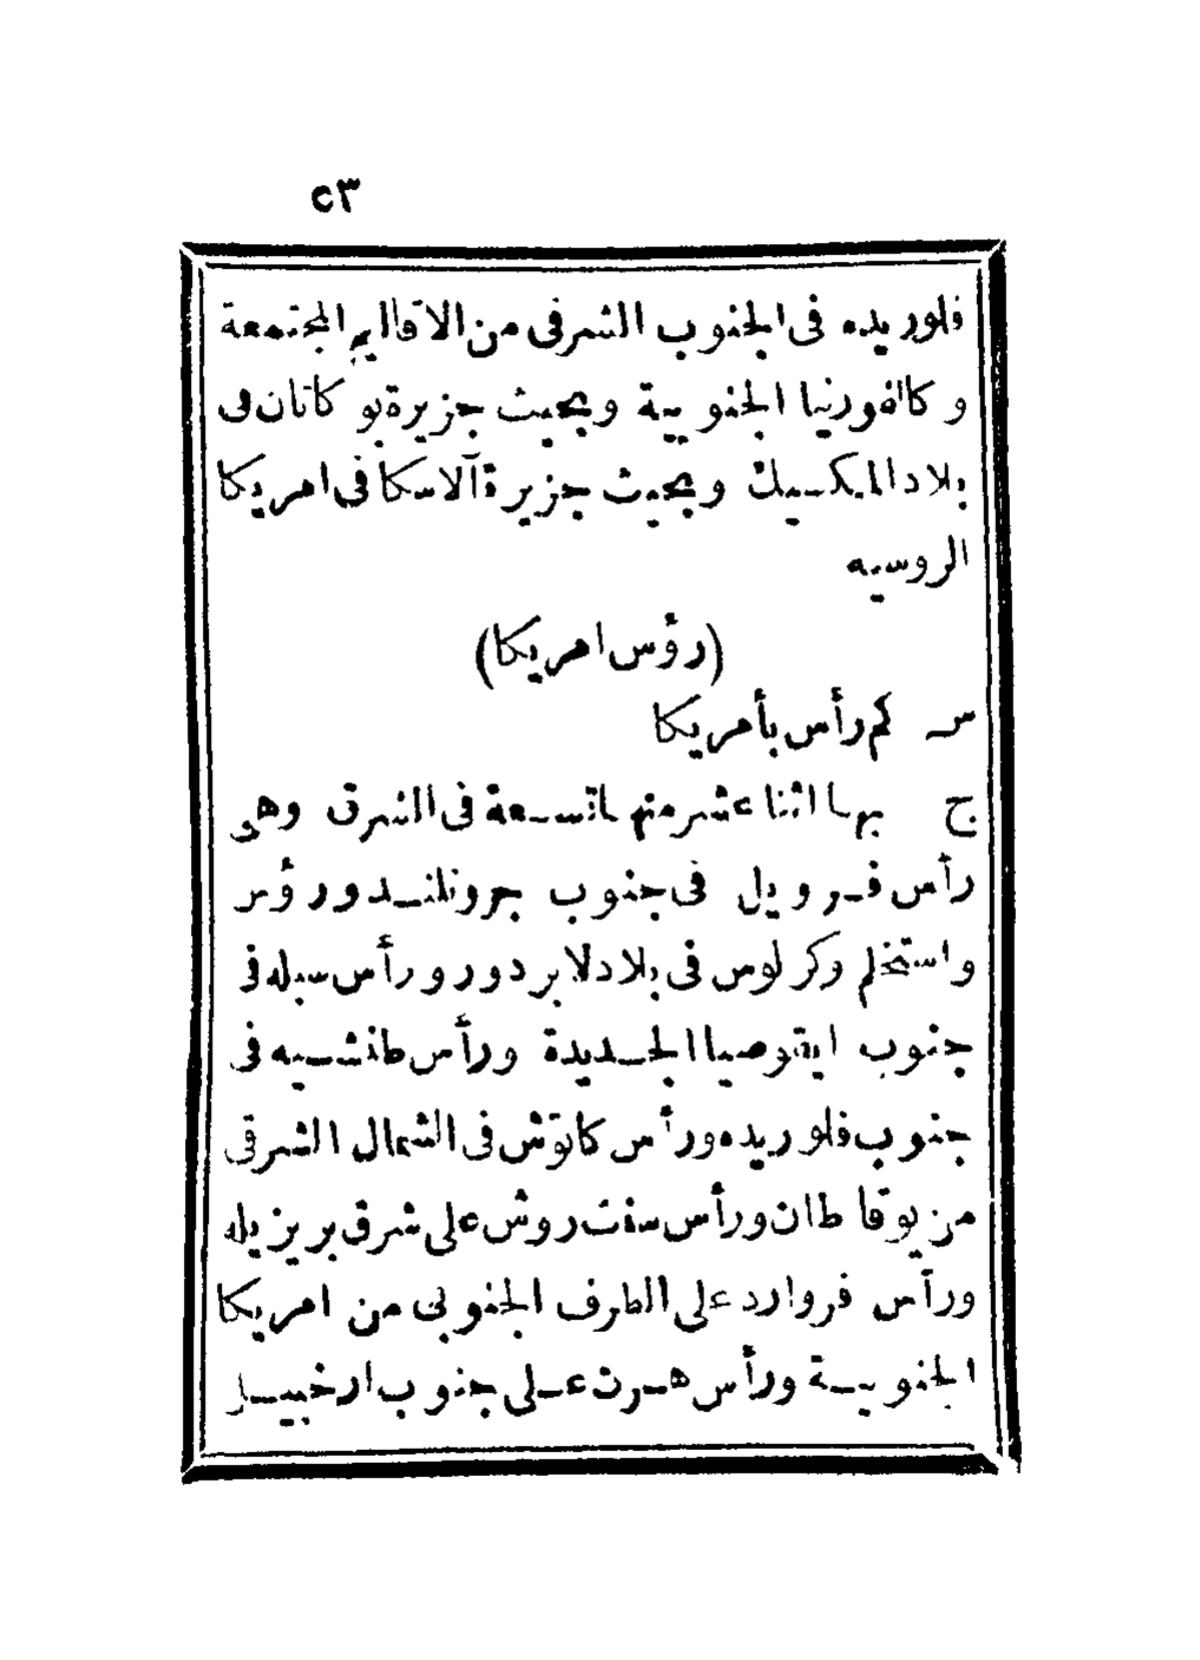 ٢٣
فلوريده فى الجنوب الشرقى من الاقاليم المجتمعة
وكالفورنيا الجنوبية وبحيث جزيرة بوكاتان فى
بلاد المكسيك وبحيث جزيرة آلاسكا فى امريكا
الروسيه
(رؤس امريكا)
س كم رأس بأمريكا
ج بها اثنا عشر منها تسعة فى الشرق وهى
رأس فرويل فى جنوب جرونلند ورؤس
واستخلم وكرلوس فى بلاد لابردور ورأس سبله فى
جنوب ايقوصيا الجديدة ورأس طنشيه فى
جنوب فلوريده ورأس كاتوش فى الشمال الشرقى
من يوقاطان ورأس سنت روش على شرق بريزيله
ورأس فروارد على الطرف الجنوبى من امريكا
الجنوبية ورأس هرن على جنوب ارخبيل